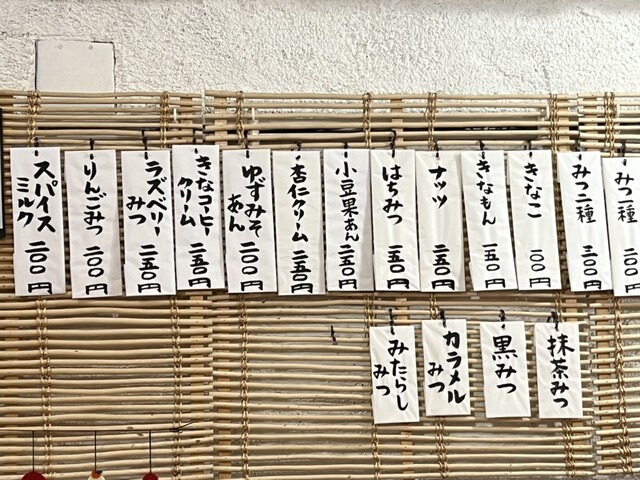 みつ一種 二〇〇円
みつ二種 三〇〇円
きなこ 一〇〇円
きなもん 一五〇円
ナッツ 二五〇円
はちみつ 一五〇円
小豆果あん 二五〇円
杏仁クリーム 二五〇円
ゆずみそあん 二〇〇円
きなコーヒークリーム 二五〇円
ラズベリーみつ 二五〇円
りんごみつ 二〇〇円
スパイスミルク 二〇〇円
抹茶みつ
黒みつ
カラメルみつ
みたらしみつ